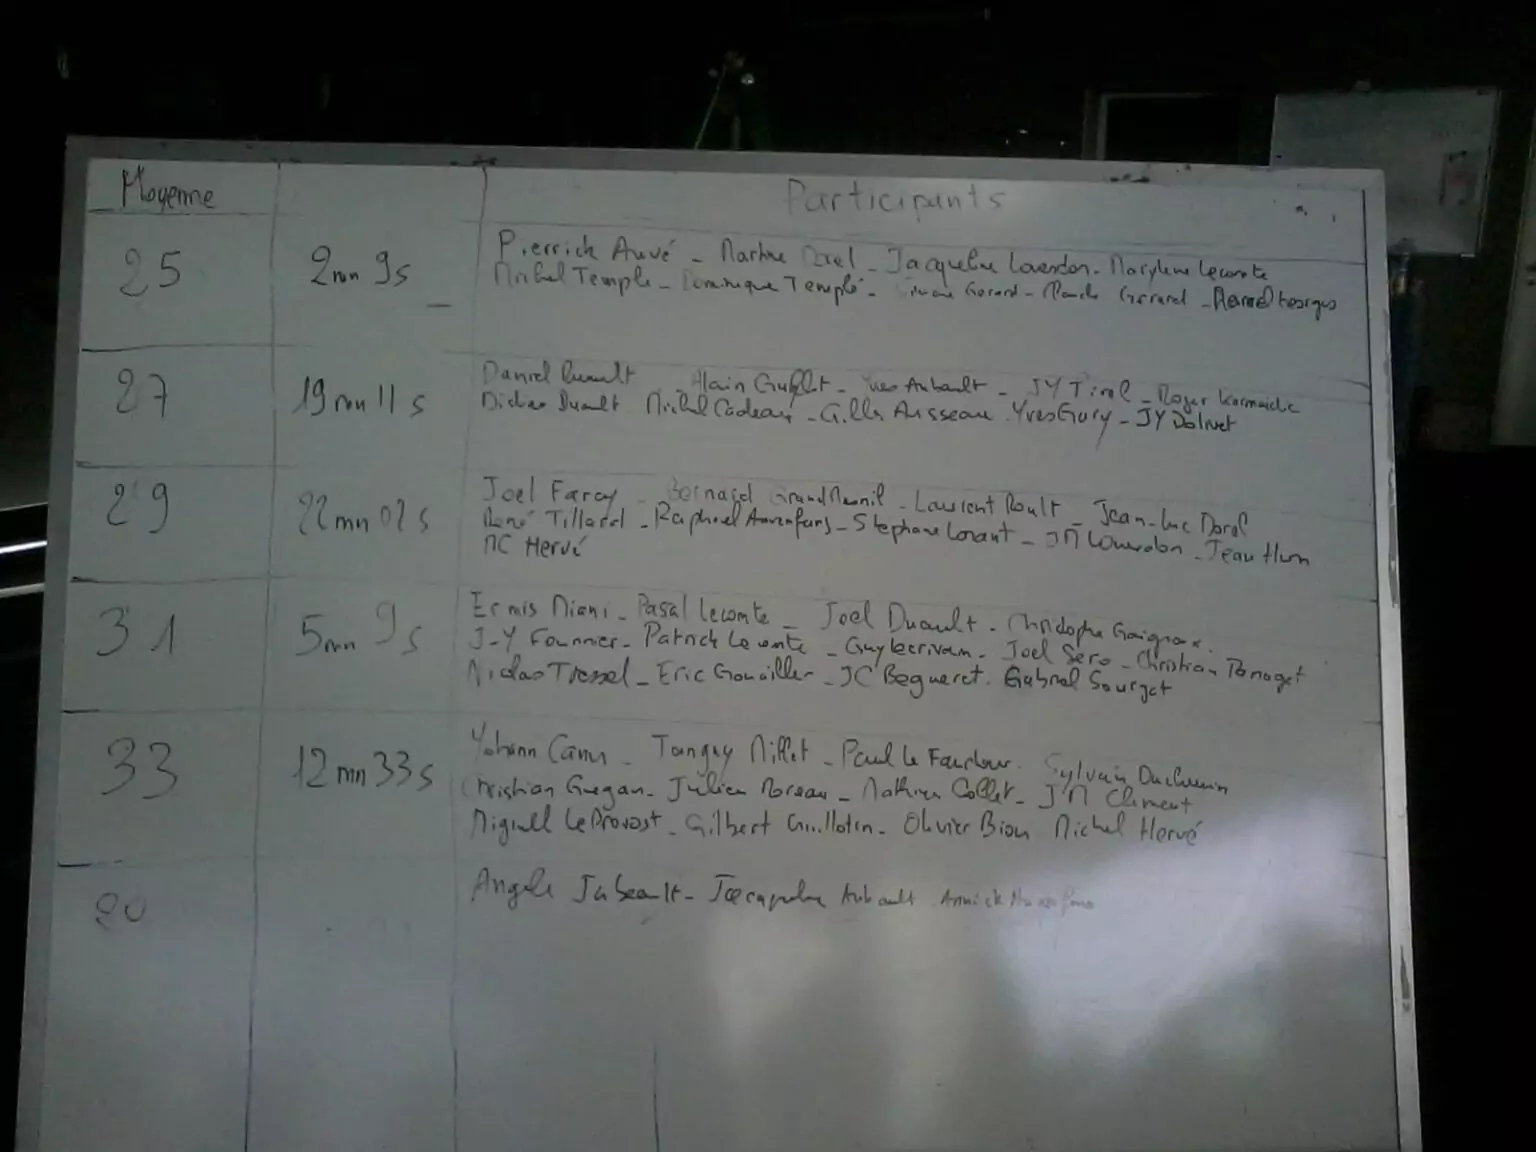 Moyenne Participants
25 2mn 9s Pierrick Auvé - Martine Dorel - Jacqueline Lavandon - Marylene Lecomte
Michel Temple - Dominique Temple - Gerard - Gerard - Georges
27 19mn 11s Daniel Duault Alain - Yves Aubault - JY Tirel - Roger
Didier Duault Michel Cadeau - Gilles Aussean Yves Gory - JY Dolivet
29 22mn 02s Joel Farcy - Bernard GrandMesnil - Laurent Roult Jean-Luc Dorel
René Tillard - Raphael - Stephane Lorant - JM - Jean
MC Hervé
31 5mn 9s Ermis Miani - Pasal Lecomte - Joel Duault - Christophe
J-Y Fournier - Patrick Lecomte - Guy Lecrivain - Joel Sero - Christian
Nicolas Tressel - Eric - JC Begueret. Gabriel Sourget
33 12mn 33s Yohann Canu - Tanguy Millet - Paul Le Sylvain Duchemin
Christian Guegan - Julien Moreau - Mathieu Collet - JM Clement
Miguell LeProvost - Gilbert Guillotin - Olivier Bion Michel Hervé
20 Angele - Jacqueline Aubault Annick